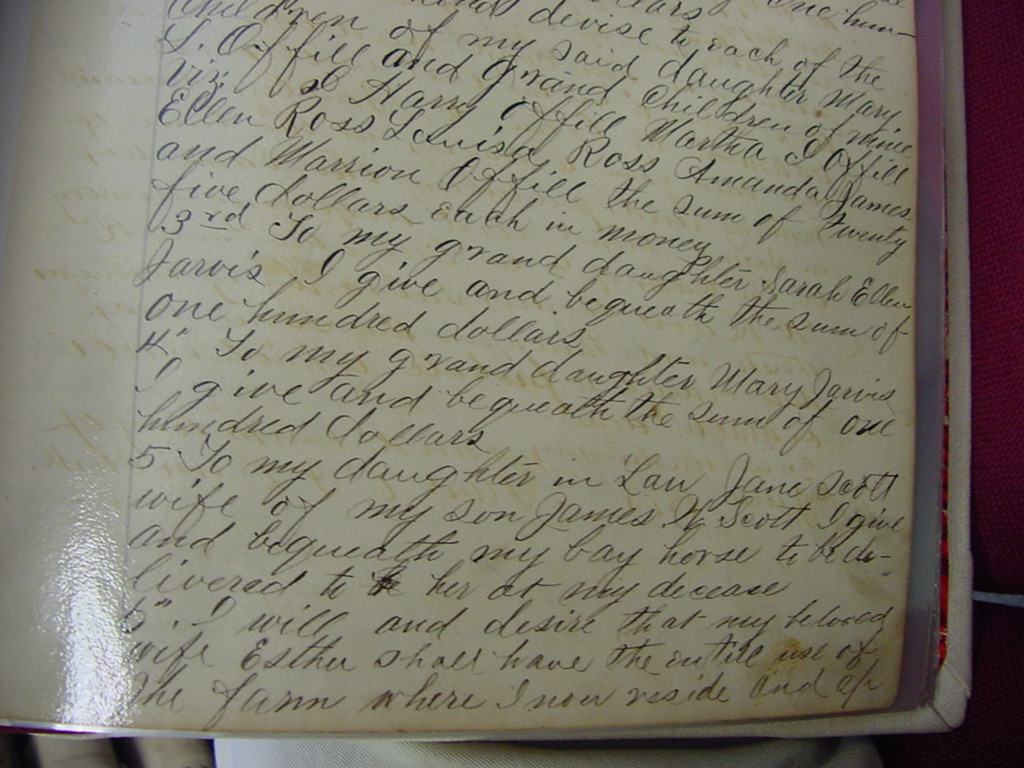 dollars One hun-
and devise to each of the
Children of my said daughter Mary
S. Offill and grand Children of mine
viz. Harry Offill Martha J Offill
Ellen Ross Louisa Ross Amanda James
and Marrion Offill the sum of Twenty
five dollars each in money
3rd To my grand daughter Sarah Ellen
Jarvis I give and bequeath the sum of
one hundred dollars
4" To my grand daughter Mary Jarvis
I give and bequeath the sum of one
hundred dollars
5 To my daughter in Law Jane Scott
wife of my son James W Scott I give
and bequeath my bay horse to be de-
livered to her at my decease
6". I will and desire that my beloved
wife Esther shall have the entire use of
the farm where I now reside and of